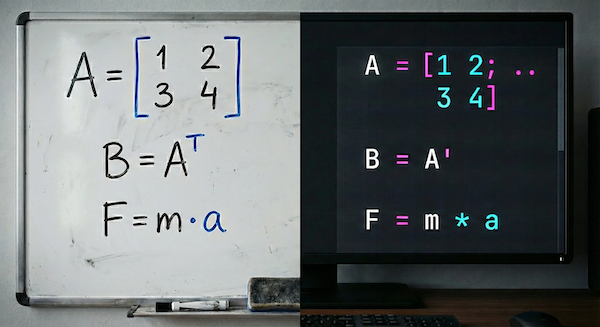 A = [1 2
3 4]
B = Aᵀ
F = m·a
A = [1 2; ..
3 4]
B = A'
F = m * a